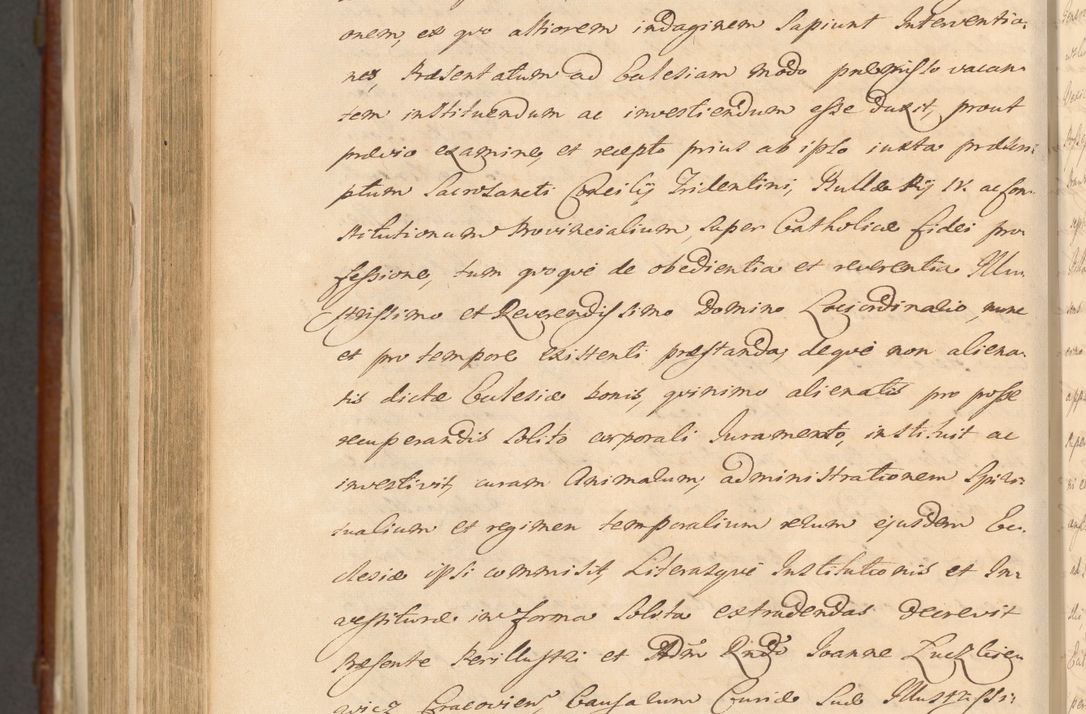 onem, ex quo altiorem indaginem sapiunt Interventio-
nes, Præsentatum ad Ecclesiam modo præmisso vacan-
tem instituendum ac investiendum esse duxit, prout
prævio examine, et recepto prius ab ipso iuxta præscri-
ptum Sacrosancti Concilij Tridentini, Bullæ Pij IV. ac Con-
stitutionum Provincialium, super Catholicæ fidei pro-
fessione, tum quoque de obedientia et reverentia Illu-
strissimo et Reverendissimo Domino Loci ordinario, nunc
et pro tempore existenti præstanda, deque non aliena-
tis dictæ Ecclesiæ bonis, quinimo alienatis pro posse
recuperandis solito corporali Juramento, instituit ac
investivit, curam Animarum, administrationem Spiri-
tualium et regimen temporalium rerum ejusdem Ec-
clesiæ ipsi commisit, Literasque Institutionis et In-
vestituræ in forma solita extradendas decrevit
Præsente Perillustri et Adm Rndo Joanne
Cracovien, Causarum Curiæ Suæ Illustrissi-